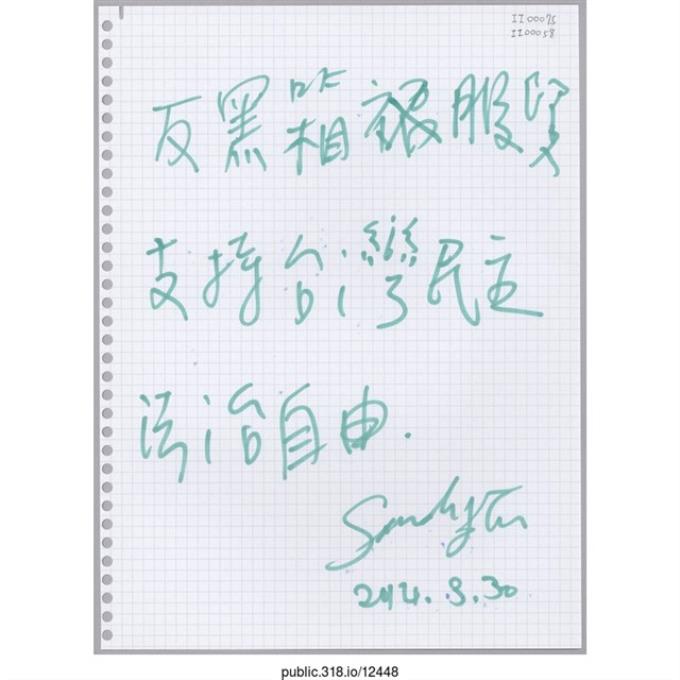 II00058
反黑箱服貿
支持台灣民主
法治自由.
2014.3.30
public.318.io/12448